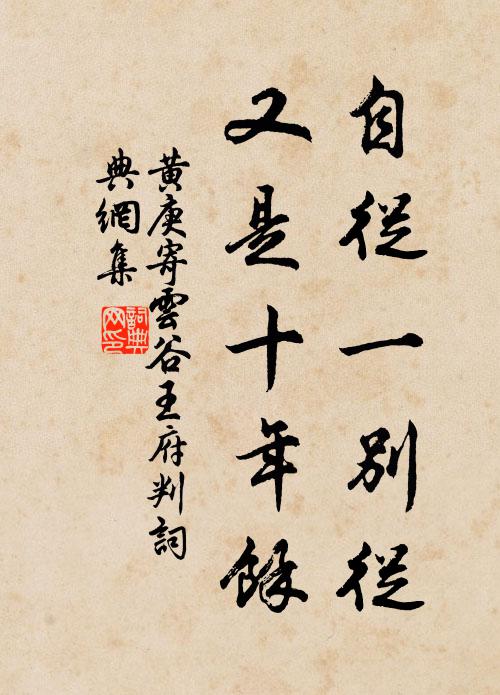 自從一別從
又是十年餘
黃庚寄雲谷王府判詞
典網集
詞典網印